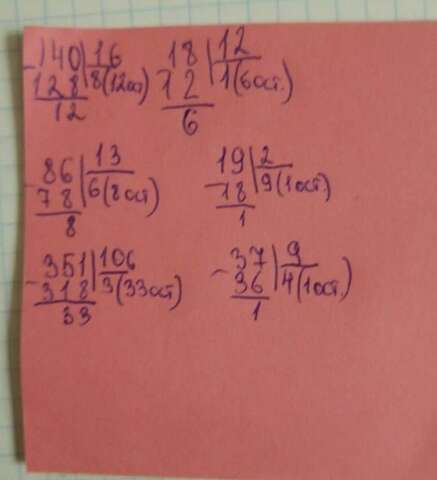 -140|16 18|12
128 8(12ост) 12 1(6ост.)
12 6
-86|13 19|2
78 6(8ост) -18 9(1ост.)
8 1
-351|106 -37|9
318 3(33ост) 36 4(1ост.)
33 1